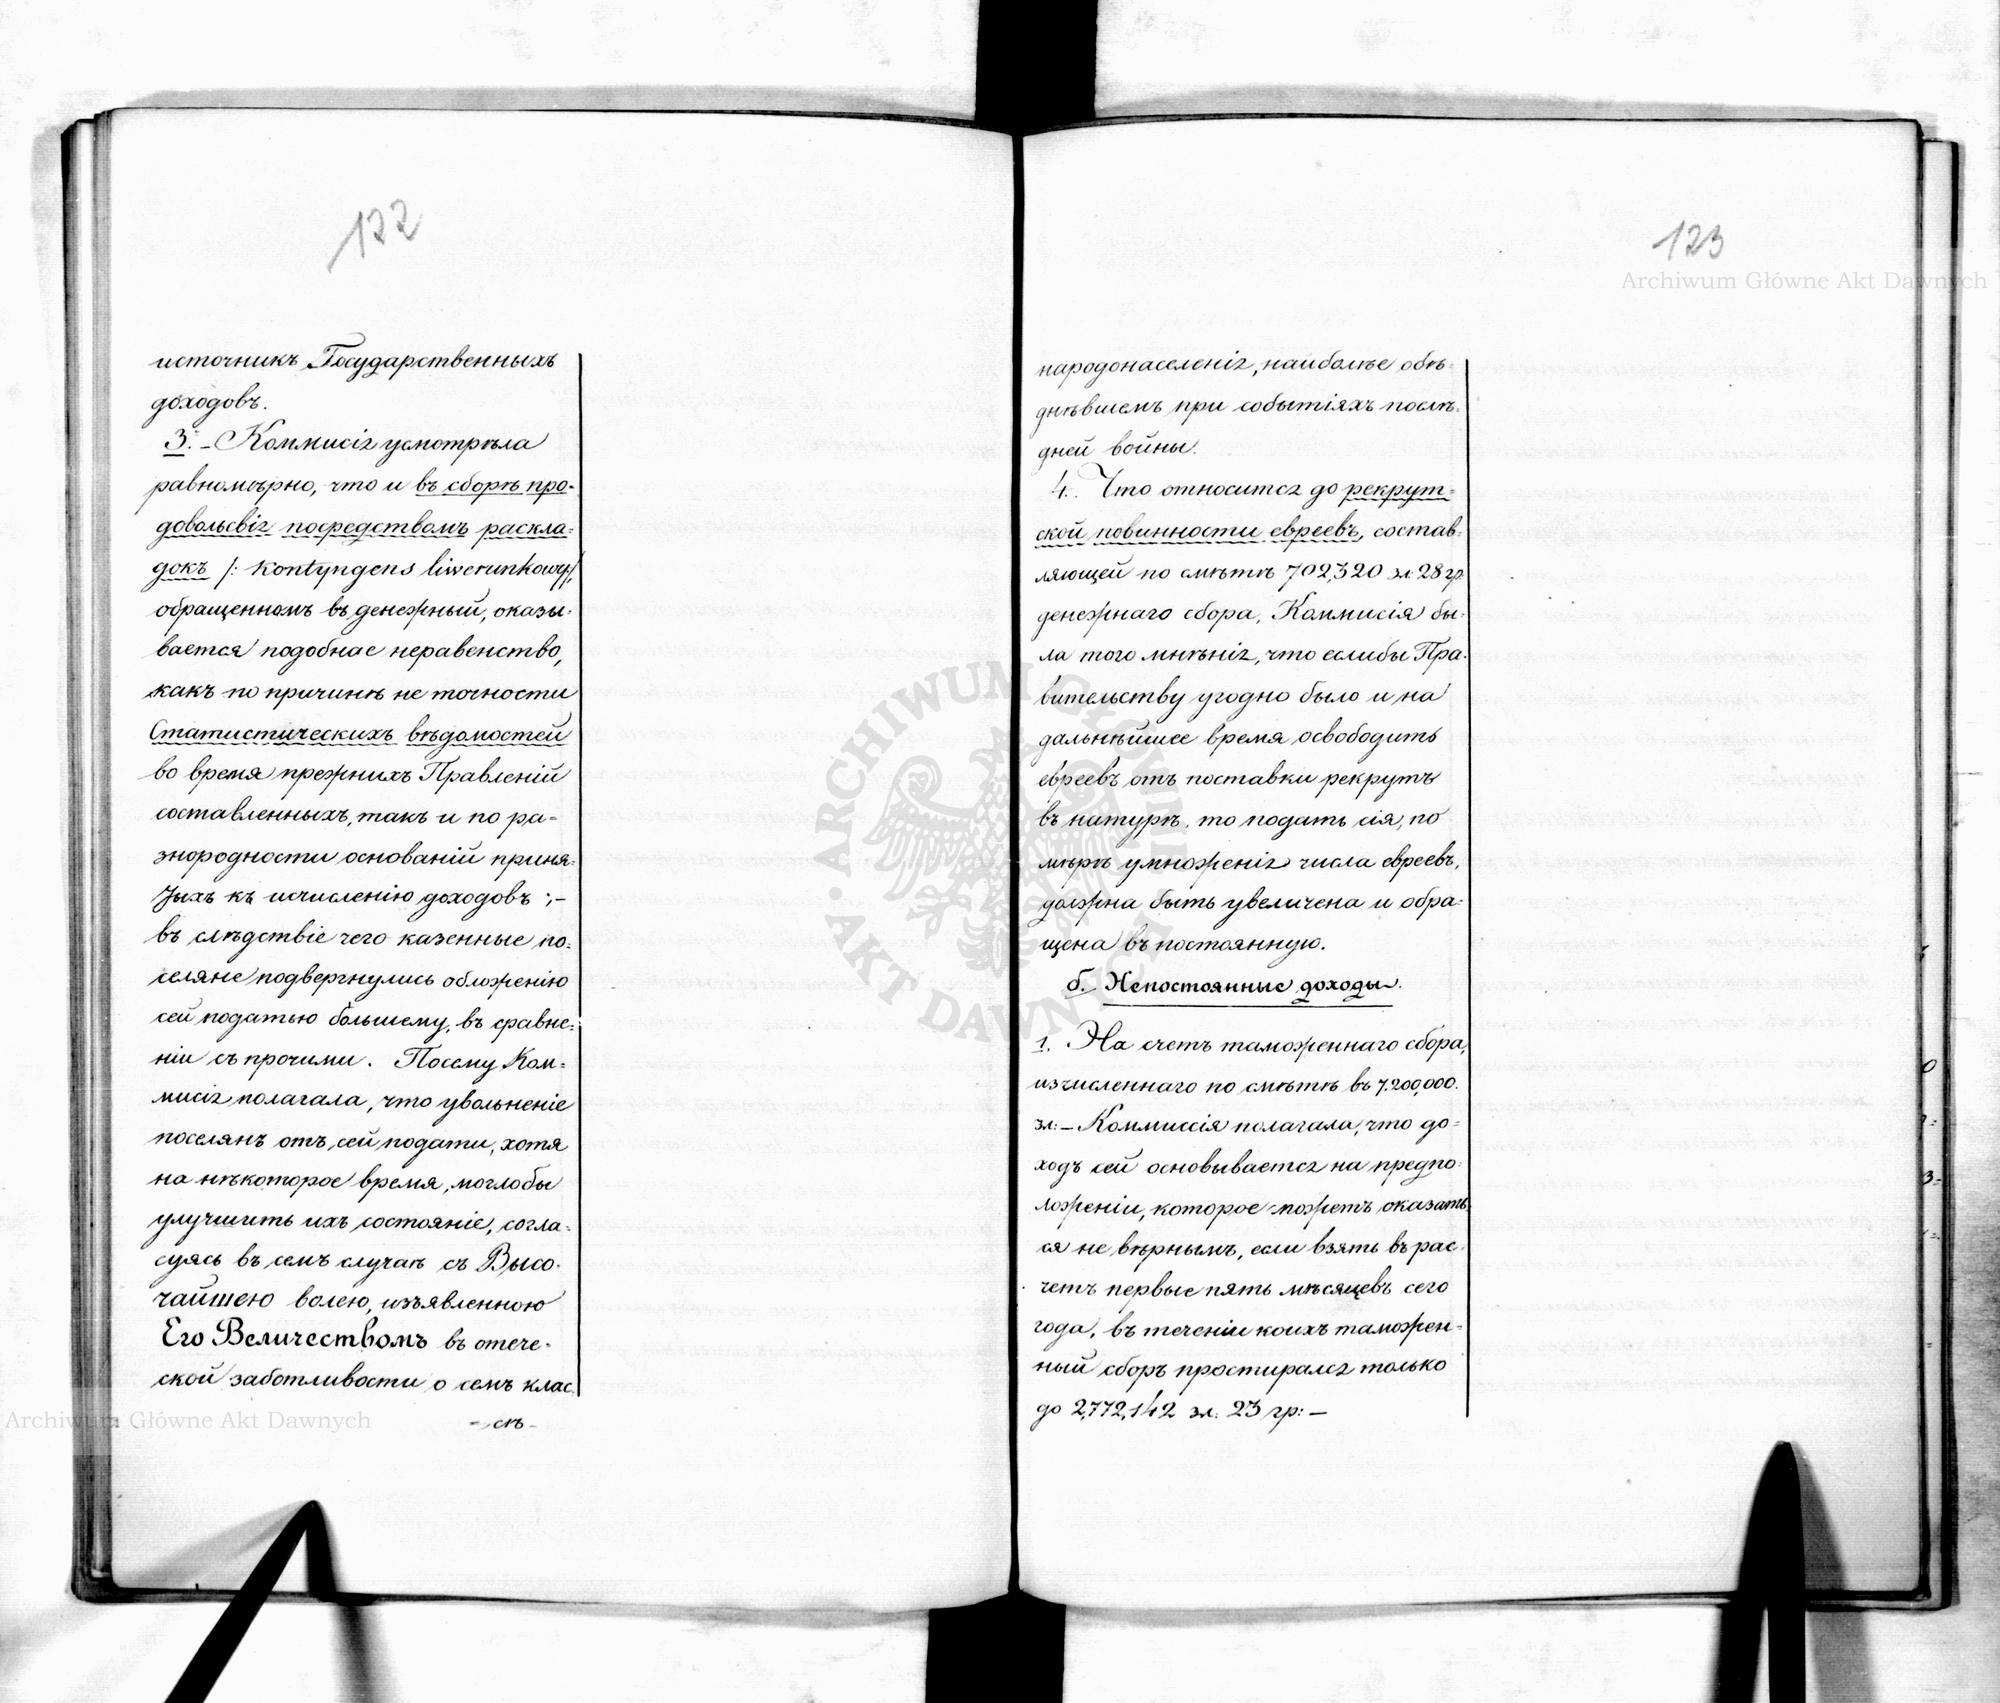 122
источникъ Государственныхъ
доходовъ.
3. – Коммисія усмотрѣла
равномѣрно, что и въ сборѣ про-
довольсвія посредствомъ раскла-
докъ /: kontyngens liwerunkowy/,
обращенномъ въ денежный, оказы-
вается подобное неравенство,
какъ по причинѣ не точности
Статистическихъ вѣдомостей
во время прежнихъ Правленій
составленныхъ, такъ и по ра-
знородности основаній приня-
тыхъ къ исчисленію доходовъ :,–
въ слѣдствіе чего казенные по-
селяне подвергнулись обложенію
сей податью большему, въ сравне-
ніи съ прочими. Посему Ком-
мисія полагала, что увольненіе
поселянъ отъ сей подати, хотя
на нѣкоторое время, моглобы
улучшить ихъ состояніе, согла-
суясь въ семъ случаѣ съ Высо-
чайшею волею, изъявленною
Его Величествомъ въ отече-
ской заботливости о семъ клас
– сѣ –
123
народонаселенія, наиболѣе обѣ-
днѣвшемъ при событіяхъ послѣ-
дней войны.
4. Что относится до рекрут-
ской повинности евреевъ, состав-
ляющей по смѣтѣ 702,320 зл. 28 гр
денежнаго сбора, Коммисія бы-
ла того мнѣнія, что еслибы Пра-
вительству угодно было и на
дальнѣйшее время освободить
евреевъ отъ поставки рекрутъ
въ натурѣ, то подать сія, по
мѣрѣ умноженія числа евреевъ,
должна быть увеличена и обра-
щена въ постоянную.
б. Непостоянные доходы.
1. На счетъ таможеннаго сбора,
изчисленнаго по смѣтѣ въ 7,200,000.
зл: – Коммиссія полагала, что до-
ходъ сей основывается на предпо-
ложеніи, которое можетъ оказать
ся не вѣрнымъ, если взять въ рас-
четъ первые пять мѣсяцевъ сего
года, въ теченіи коихъ таможен-
ный сборъ простирался только
до 2,772,142 зл. 23 гр: –
Archiwum Główne Akt Dawnych
Archiwum Główne Akt Dawnych
ARCHIWUM GŁÓWNE AKT DAWNYCH